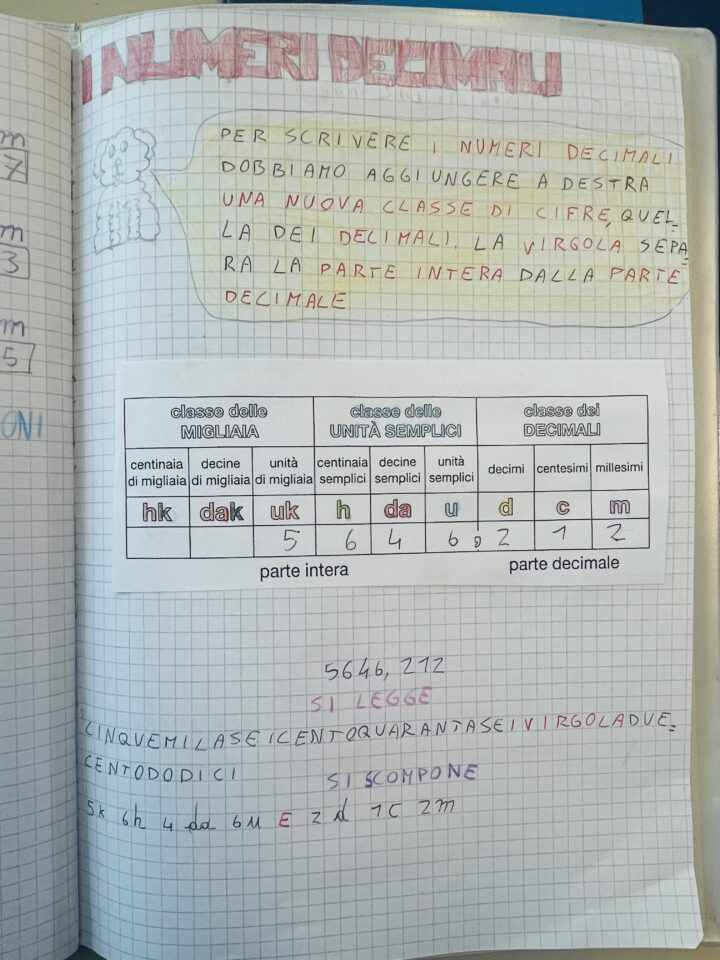 I NUMERI DECIMALI
m
7
m
3
m
5
ONI
PER SCRIVERE I NUMERI DECIMALI
DOBBIAMO AGGIUNGERE A DESTRA
UNA NUOVA CLASSE DI CIFRE, QUEL=
LA DEI DECIMALI. LA VIRGOLA SEPA
RA LA PARTE INTERA DALLA PARTE
DECIMALE
classe delle MIGLIAIA classe delle UNITÀ SEMPLICI classe dei DECIMALI
centinaia di migliaia decine di migliaia unità di migliaia centinaia semplici decine semplici unità semplici decimi centesimi millesimi
hk dak uk h da u d c m
5 6 4 6, 2 1 2
parte intera parte decimale
5646, 212
SI LEGGE
CINQUEMILASEICENTOQUARANTASEI VIRGOLADUE=
CENTODODICI
SI SCOMPONE
5k 6h 4 da 6u E 2 d 1c 2m